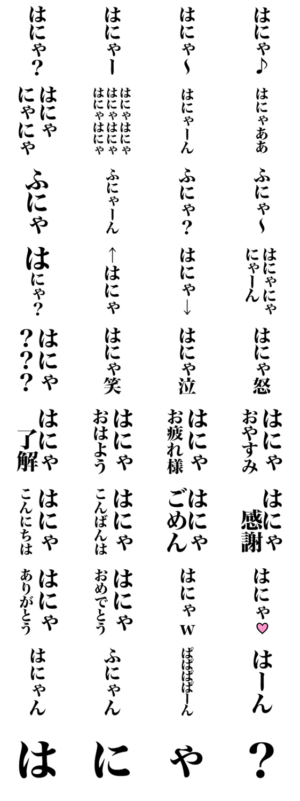 はにゃ？
はにゃー
はにゃ〜
はにゃ♪
はにゃ
にゃにゃ
はにゃはにゃ
はにゃはにゃ
はにゃはにゃ
はにゃーん
はにゃああ
ふにゃ
ふにゃーん
ふにゃ？
ふにゃ〜
はにゃ？
←はにゃ
はにゃ↓
はにゃにゃ
にゃーん
はにゃ
？？？
はにゃ笑
はにゃ泣
はにゃ怒
はにゃ
了解
はにゃ
おはよう
はにゃ
お疲れ様
はにゃ
おやすみ
はにゃ
こんにちは
はにゃ
こんばんは
はにゃ
ごめん
はにゃ
感謝
はにゃ
ありがとう
はにゃ
おめでとう
はにゃw
はにゃ♥
はにゃん
ふにゃん
ぱぱぱぱーん
はーん
は
に
ゃ
？